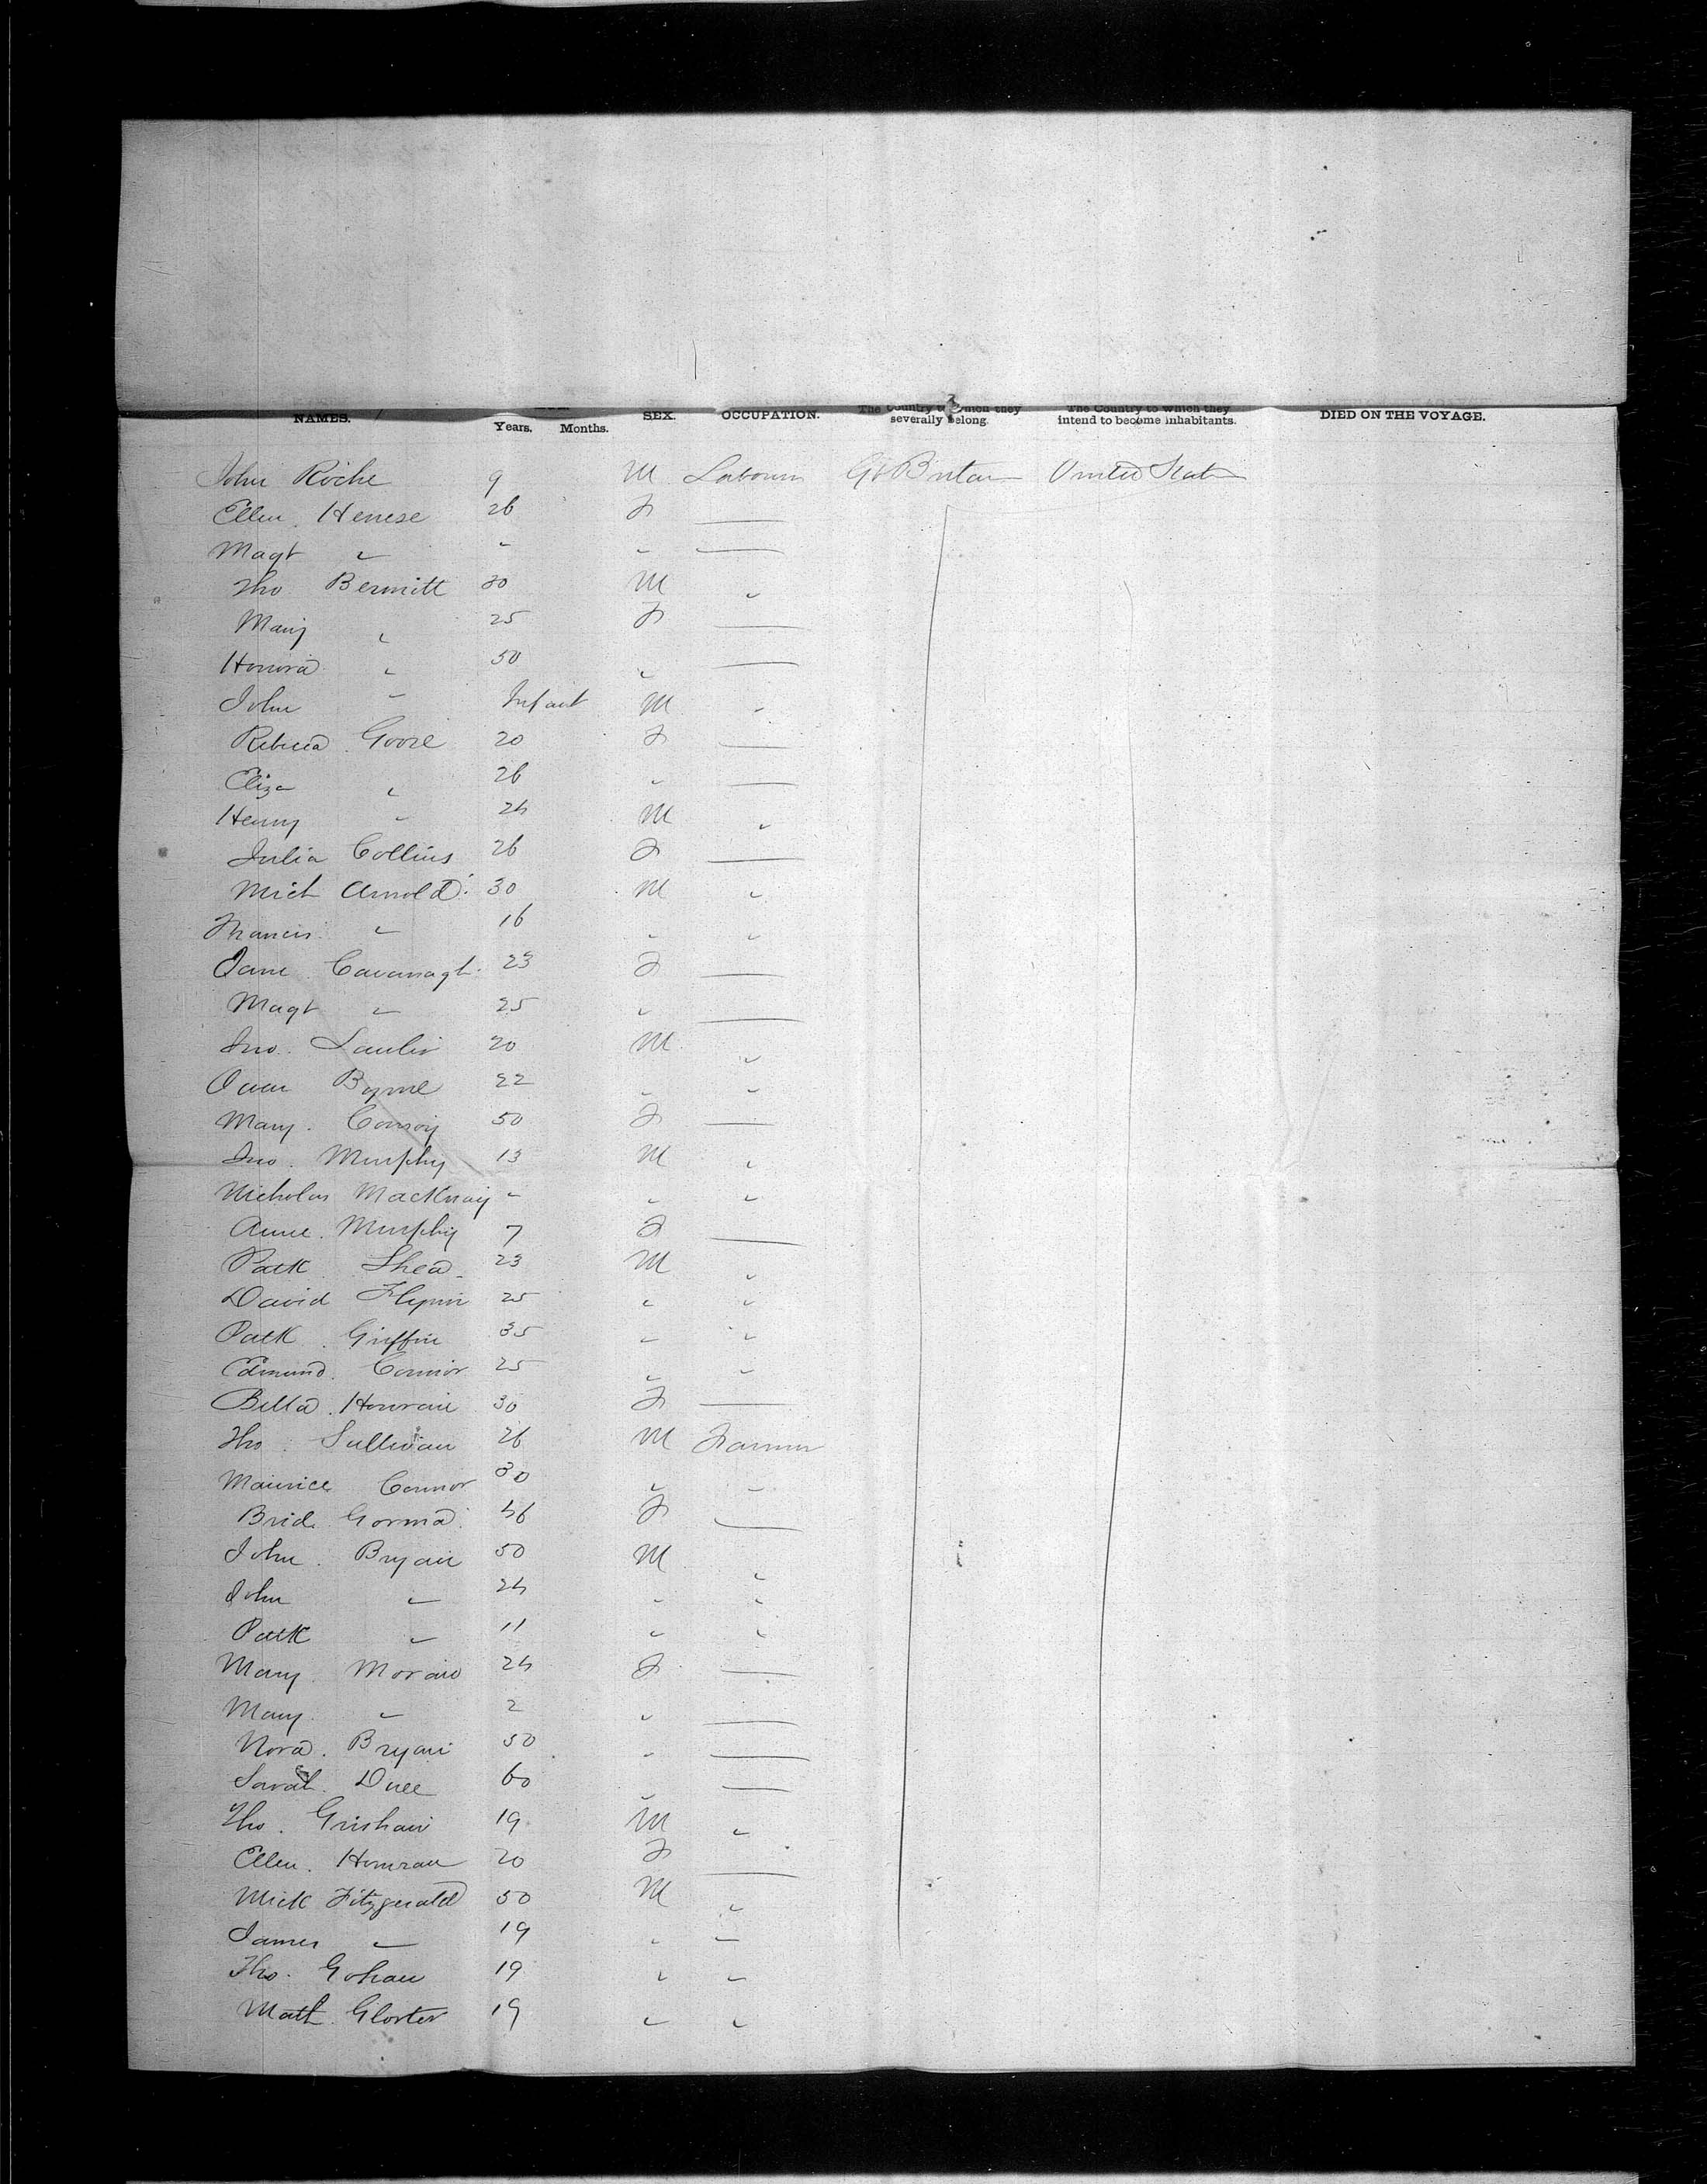 NAMES. Years. Months. SEX. OCCUPATION. The Country to which they severally belong. The Country to which they intend to become inhabitants. DIED ON THE VOYAGE.
John Roche 9 M Labourer Gt Britain United States
Ellen Henese 26 F —
Magt " " " —
Tho Bennitt 30 M "
Mary " 25 F —
Honora " 50 " —
John " Infant M "
Rebecca 20 F —
Eliza " 26 " —
Henry " 24 M "
Julia Collins 26 F —
Mich Arnold 30 M "
Francis " 16 " "
Jane Cavanagh 23 F —
Magt " 25 " —
Jno. Lawlir 20 M "
Owen Byrne 22 " "
Mary Conroy 50 F —
Jno. Murphy 13 M "
Nicholas " " "
Anne Murphy 7 F —
Patk Shea 23 M "
David Flynn 25 " "
Patk Griffin 35 " "
Edmund Connor 25 " "
Bella 30 F —
Tho Sullivan 26 M Farmer
Maurice Connor 30 " "
Brid Gorma 46 F —
John Bryan 50 M "
John " 24 " "
Patk " 11 " "
Mary Moran 24 F —
Mary " 2 " —
Nora Bryan 50 " —
Sarah 60 " —
Tho. Grishaw 19 M "
Ellen 20 F —
Mick Fitzgerald 50 M "
James " 19 " "
Tho. Gohau 19 " "
Math Gloster 19 " "